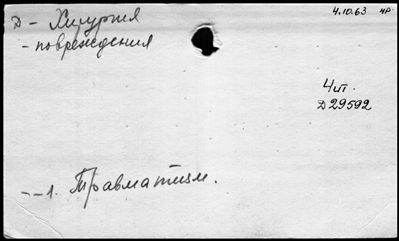 4.10.63 НР
Д - Хирургия
- повреждения
Чит.
Д 29592
- - 1. Травматизм.